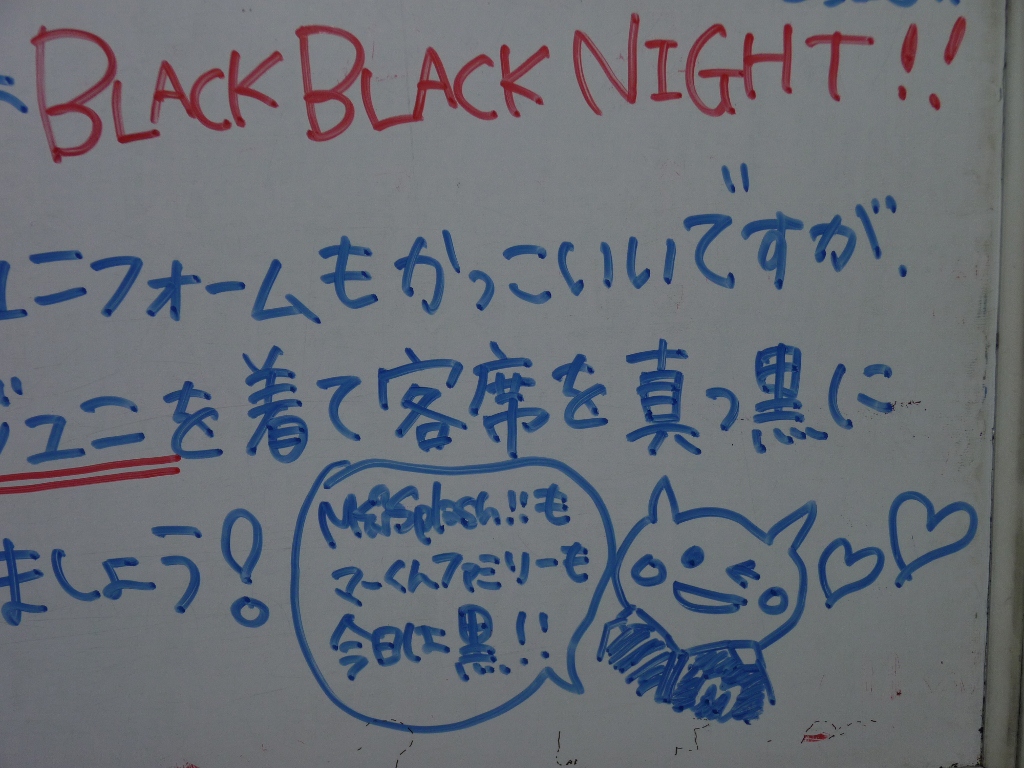 BLACK BLACK NIGHT!!
ユニフォームもかっこいいですが、
ジユニを着て客席を真っ黒に
ましょう!
M☆Splash!!も
マーくんファミリーも
今日は黒!!